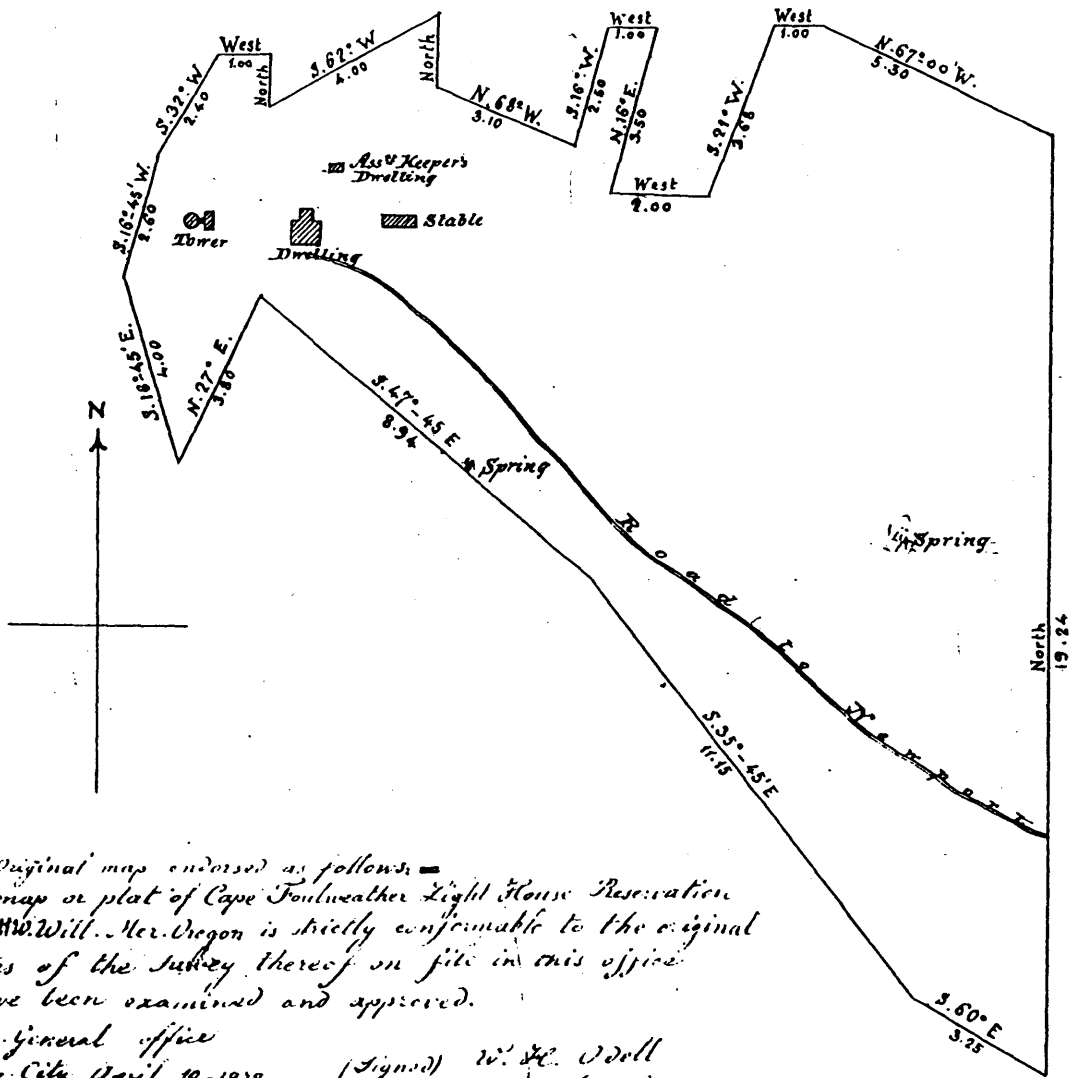 West
1.00
North
S.62° W
4.00
North
N.68° W.
3.10
S.16° W.
2.60
West
1.00
N.16° E.
3.50
West
2.00
S.21° W.
3.68
West
1.00
N.67°00'W.
5.30
S.32° W
2.40
S.16°-45'W.
2.60
S.16°-45'E.
4.00
N.27° E.
3.80
Asst Keeper's
Dwelling
Tower
Dwelling
Stable
N
S.47°-45 E
8.94
Spring
Spring
Road to Newport
North
19.24
S.35°-45'E
11.15
S.60° E
3.25
Original map endorsed as follows:
map or plat of Cape Foulweather Light House Reservation
W. Will. Mer. Oregon is strictly conformable to the original
of the survey thereof on file in this office
been examined and approved.
General office
City April (Signed) W. H. Odell